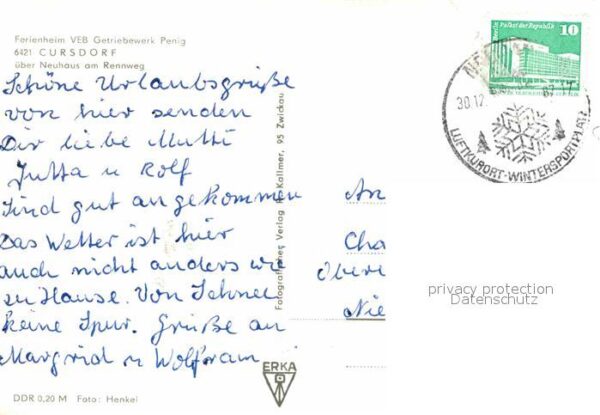 Ferienheim VEB Getriebewerk Penig
6421 CURSDORF
über Neuhaus am Rennweg
Schöne Urlaubsgrüße
von hier senden
Dir liebe Mutti
Jutta u Rolf
Sind gut angekommen
Das Wetter ist hier
auch nicht anders wie
zu Hause. Von Schnee
keine Spur. Grüße an
Margrid u Wolfram
DDR 0,20 M Foto: Henkel
Fotografischer Verlag Kallmer, 95 Zwickau
ERKA
Berlin Palast der Republik
10
NE
30.12. 82-17
LUFTKURORT-WINTERSPORTPLATZ
An
Cha
Ober
Nie
privacy protection
Datenschutz